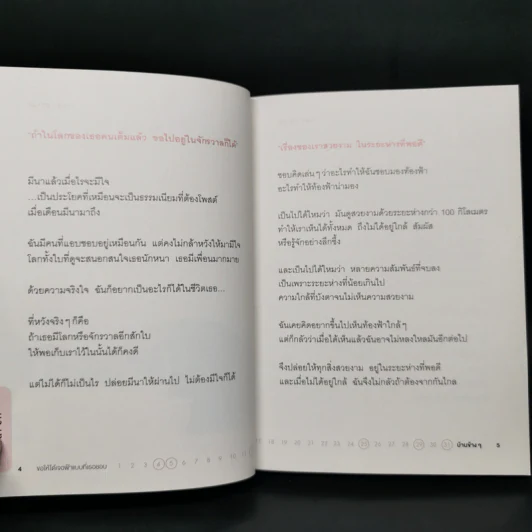 "ถ้าในโลกของเธอคนเต็มแล้ว ขอไปอยู่ในจักรวาลก็ได้"
มีนาแล้วเมื่อไรจะมีใจ
...เป็นประโยคที่เหมือนจะเป็นธรรมเนียมที่ต้องโพสต์
เมื่อเดือนมีนามาถึง
ฉันมีคนที่แอบชอบอยู่เหมือนกัน แต่คงไม่กล้าหวังให้มามีใจ
โลกทั้งใบที่ดูจะสนอกสนใจเธอนักหนา เธอมีเพื่อนมากมาย
ด้วยความจริงใจ ฉันก็อยากเป็นอะไรก็ได้ในชีวิตเธอ...
ที่หวังจริงๆ ก็คือ
ถ้าเธอมีโลกหรือจักรวาลอีกสักใบ
ให้พอเก็บเราไว้ในนั้นได้ก็คงดี
แต่ไม่ได้ก็ไม่เป็นไร ปล่อยมีนาให้ผ่านไป ไม่ต้องมีใจก็ได้
4 ขอให้ได้เจอฟ้าแบบที่เธอชอบ 1 2 3 4 5 6 7 8 9 10
"เรื่องของเราสวยงาม ในระยะห่างที่พอดี"
ชอบคิดเล่นๆ ว่าอะไรทำให้ฉันชอบมองท้องฟ้า
อะไรทำให้ท้องฟ้าน่ามอง
เป็นไปได้ไหมว่า มันดูสวยงามด้วยระยะห่างกว่า 100 กิโลเมตร
ทำให้เราเห็นได้ทั้งหมด ถึงไม่ได้อยู่ใกล้ สัมผัส
หรือรู้จักอย่างลึกซึ้ง
และเป็นไปได้ไหมว่า หลายความสัมพันธ์ที่จบลง
เป็นเพราะระยะห่างที่น้อยเกินไป
ความใกล้ที่บังตาจนไม่เห็นความสวยงาม
ฉันเคยคิดอยากขึ้นไปเห็นท้องฟ้าใกล้ๆ
แต่ก็กลัวว่าเมื่อได้เห็นแล้วฉันอาจไม่หลงใหลมันอีกต่อไป
จึงปล่อยให้ทุกสิ่งสวยงาม อยู่ในระยะห่างที่พอดี
และเมื่อไม่ได้อยู่ใกล้ ฉันจึงไม่กลัวถ้าต้องจากกันไกล
18 19 20 21 22 23 24 25 26 27 28 29 30 31 บ้านข้างๆ 5